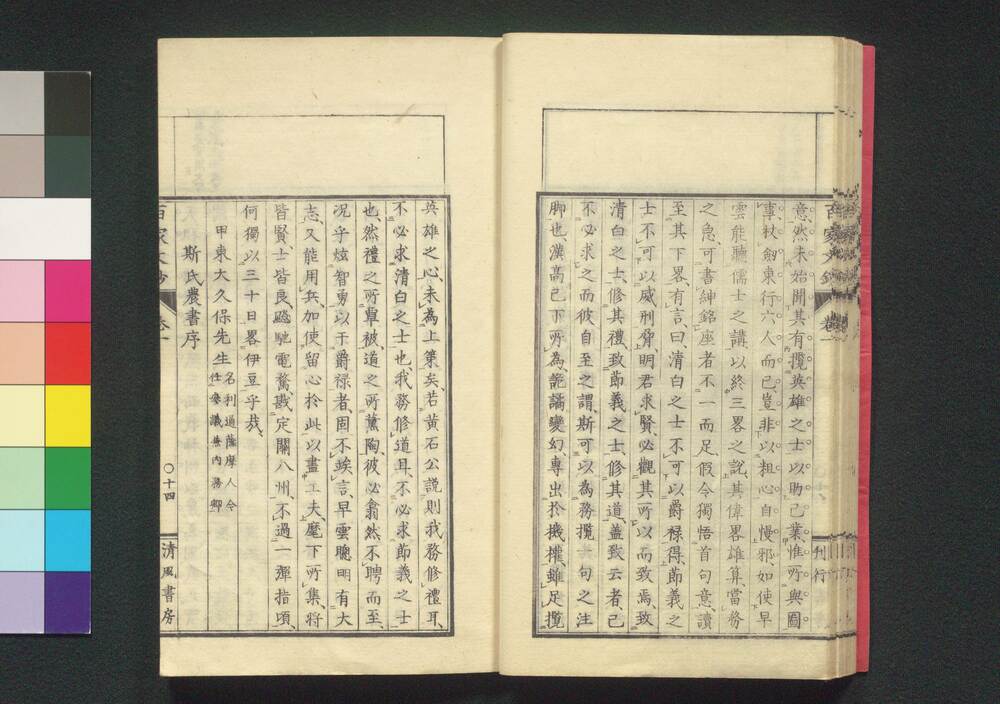 意然未始開其有攬英雄之士以助己業惟所與圖
事杖劔東行六人而已豈非以粗心自慢邪如使早
雲能聽儒士之講以終三畧之說其偉畧雄算當務
之急可書紳銘座者不一而足假令獨悟首句意讀
至其下畧有言曰清白之士不可以爵祿得節義之
士不可以威刑脅明君求賢必觀其所以而致焉致
清白之士修其禮致節義之士修其道蓋致云者己
不必求之而彼自至之謂斯可以為務攬一句之注
脚也漢高己下所為詭譎變幻專出於機權雖足攬
英雄之心未為上策矣若黃石公說則我務修禮耳
不必求清白之士也我務修道耳不必求節義之士
也然禮之所覃被道之所薰陶彼必翕然不聘而至
況乎炫智勇以干爵祿者固不竢言早雲聰明有大
志又能用兵加使留心於此以盡工夫麾下所集將
皆賢士皆良飇馳電騖戡定關八州不過一彈指頃
何獨以三十日畧伊豆乎哉
甲東大久保先生 名利通薩摩人今任參議兼內務卿
斯氏農書序
百家文鈔 卷一 〇十四 清風書房
百家文鈔 卷一 刊行